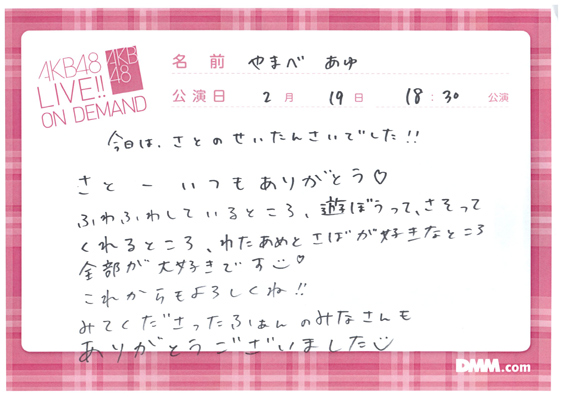 AKB48
LIVE!!
ON DEMAND
AKB
48
名前 やまべ あゆ
公演日 2月 19日 18:30 公演
今日は、さとのせいたんさいでした!!
さとーいつもありがとう♡
ふわふわしているところ、遊ぼうって、さそって
くれるところ、わたあめとさばが好きなところ
全部が大好きです♡
これからもよろしくね!!
みてくださったふぁんのみなさんも
ありがとうございました
DMM.com